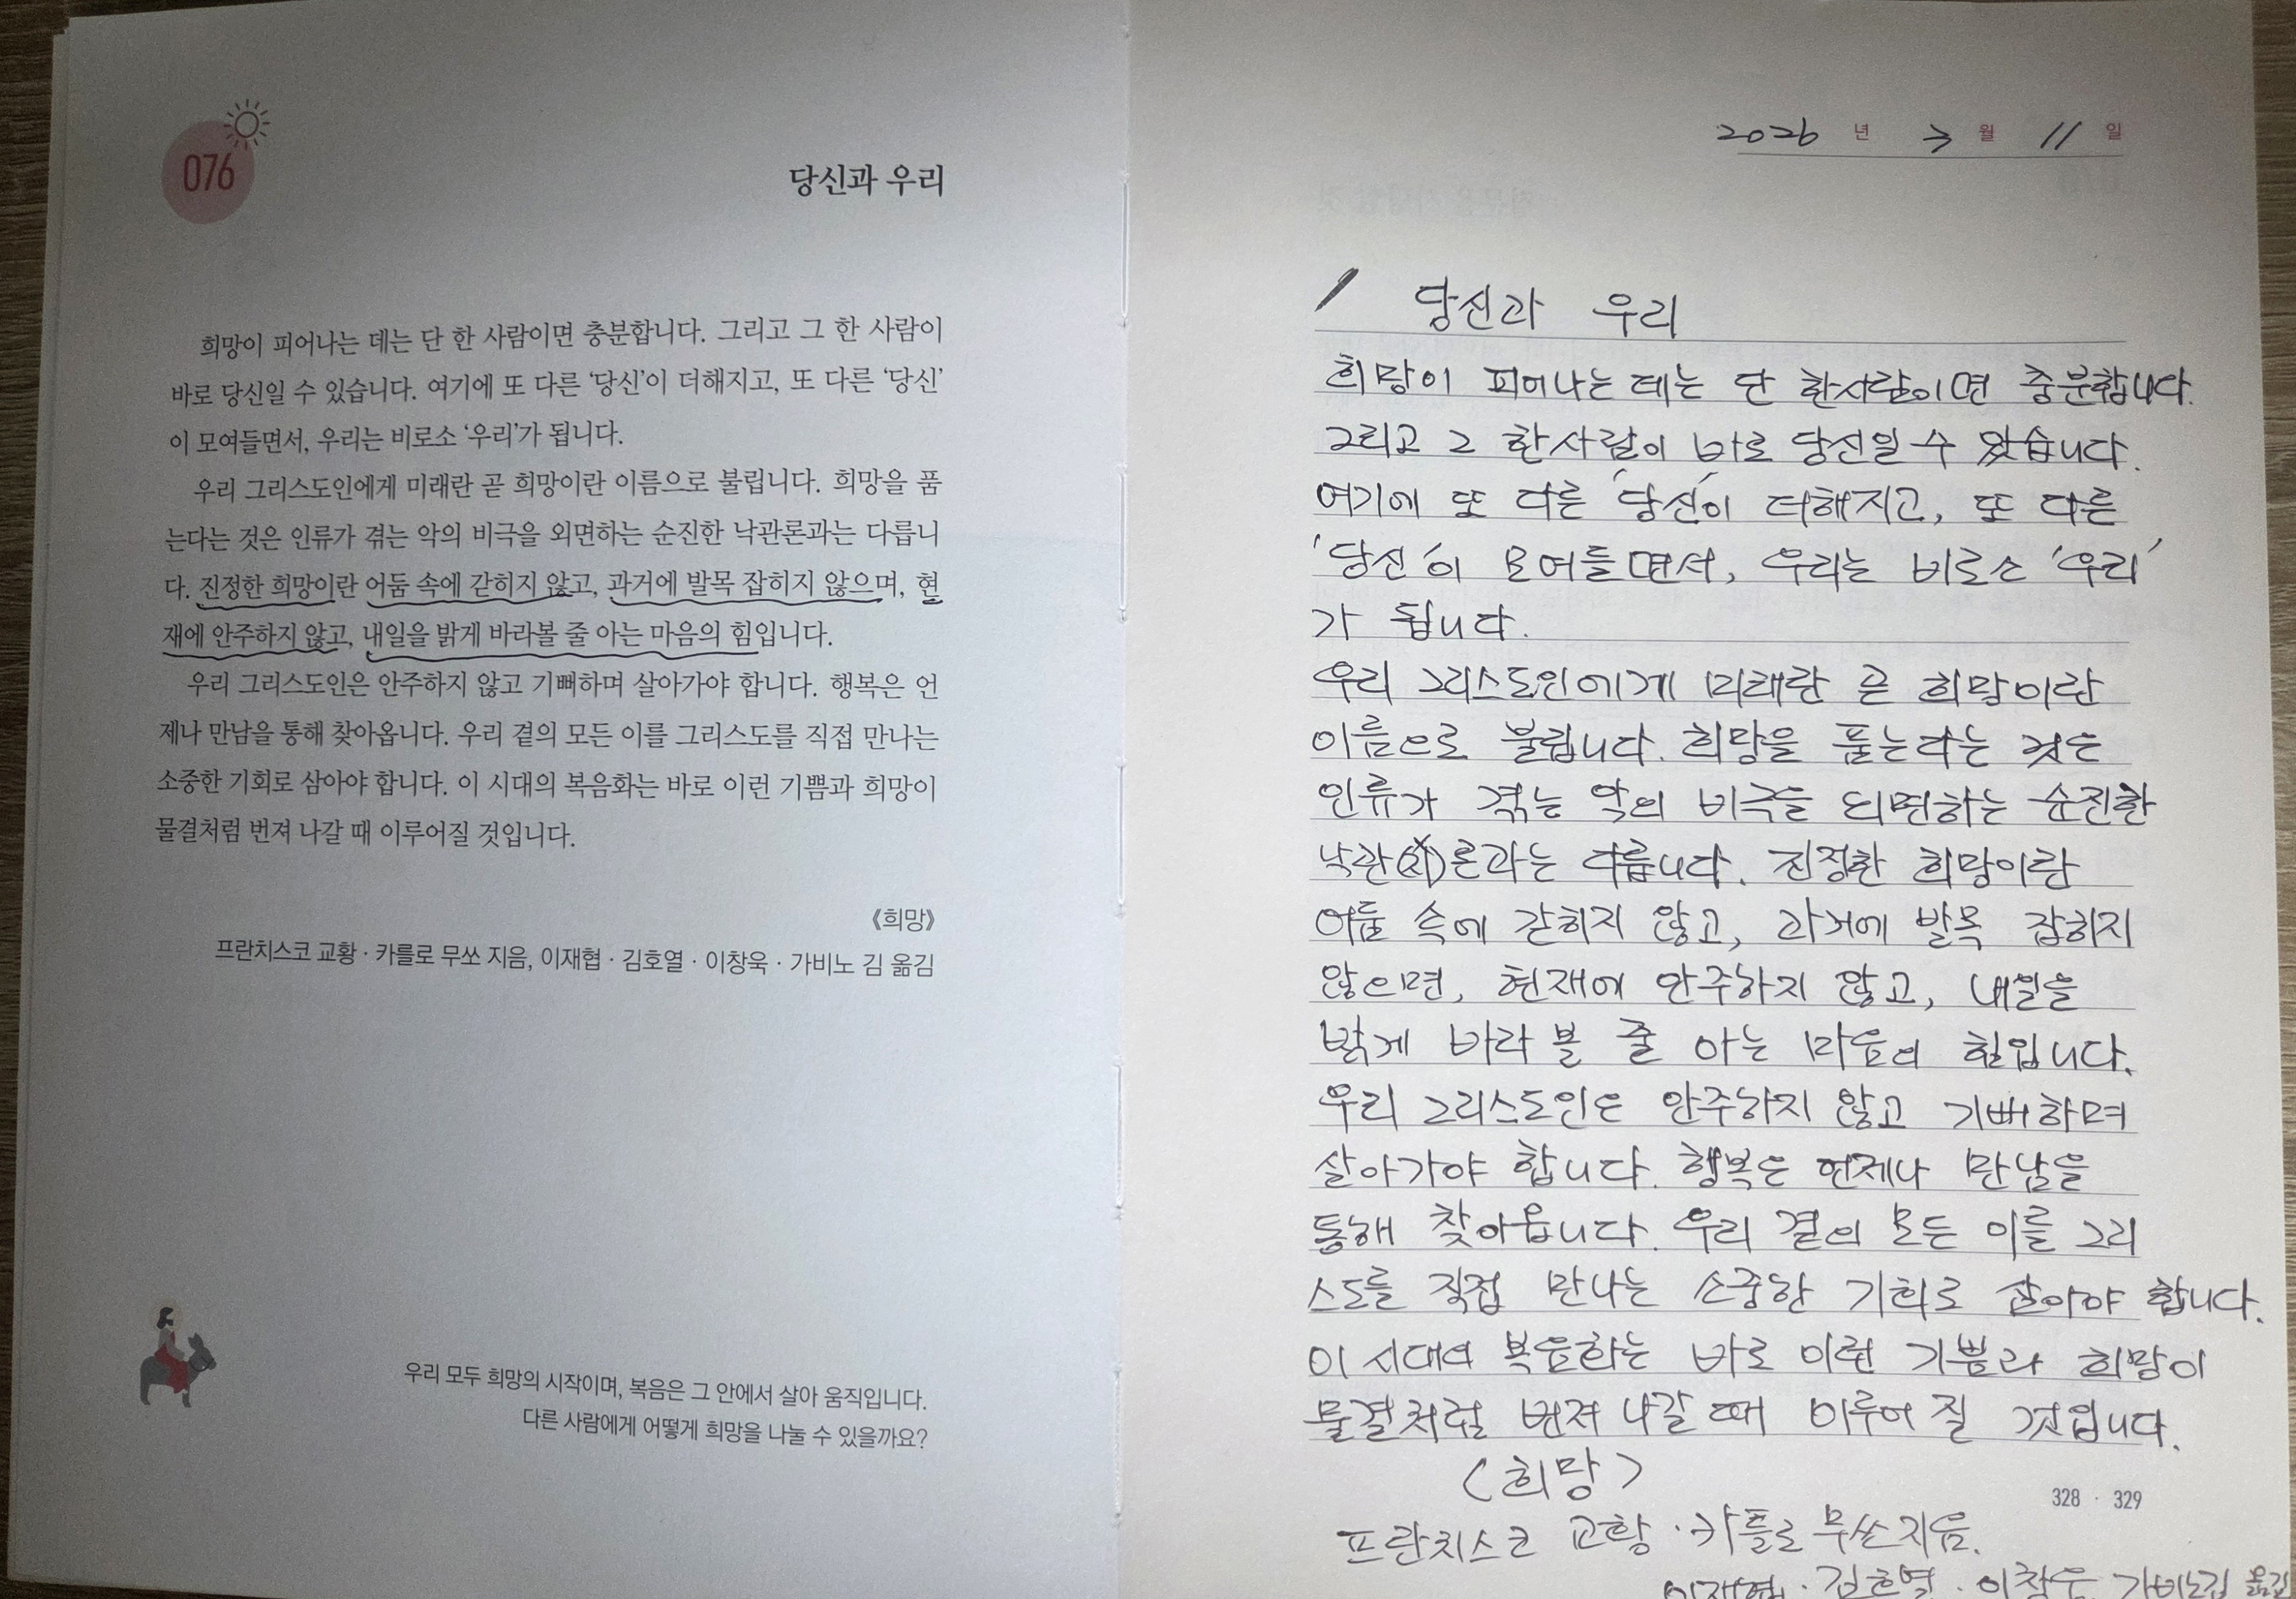 076
당신과 우리
희망이 피어나는 데는 단 한 사람이면 충분합니다. 그리고 그 한 사람이
바로 당신일 수 있습니다. 여기에 또 다른 ‘당신’이 더해지고, 또 다른 ‘당신’
이 모여들면서, 우리는 비로소 ‘우리’가 됩니다.
우리 그리스도인에게 미래란 곧 희망이란 이름으로 불립니다. 희망을 품
는다는 것은 인류가 겪는 악의 비극을 외면하는 순진한 낙관론과는 다릅니
다. 진정한 희망이란 어둠 속에 갇히지 않고, 과거에 발목 잡히지 않으며, 현
재에 안주하지 않고, 내일을 밝게 바라볼 줄 아는 마음의 힘입니다.
우리 그리스도인은 안주하지 않고 기뻐하며 살아가야 합니다. 행복은 언
제나 만남을 통해 찾아옵니다. 우리 곁의 모든 이를 그리스도를 직접 만나는
소중한 기회로 삼아야 합니다. 이 시대의 복음화는 바로 이런 기쁨과 희망이
물결처럼 번져 나갈 때 이루어질 것입니다.
《희망》
프란치스코 교황 · 카를로 무쏘 지음, 이재협 · 김호열 · 이창욱 · 가비노 김 옮김
우리 모두 희망의 시작이며, 복음은 그 안에서 살아 움직입니다.
다른 사람에게 어떻게 희망을 나눌 수 있을까요?
2026 년 3 월 11 일
당신과 우리
희망이 피어나는 데는 단 한사람이면 충분합니다.
그리고 그 한사람이 바로 당신일 수 있습니다.
여기에 또 다른 '당신'이 더해지고, 또 다른
'당신'이 모여들면서, 우리는 비로소 '우리'
가 됩니다.
우리 그리스도인에게 미래란 곧 희망이란
이름으로 불립니다. 희망을 품는다는 것은
인류가 겪는 악의 비극을 외면하는 순진한
낙관( )론과는 다릅니다. 진정한 희망이란
어둠 속에 갇히지 않고, 과거에 발목 잡히지
않으면, 현재에 안주하지 않고, 내일을
밝게 바라볼 줄 아는 마음의 힘입니다.
우리 그리스도인은 안주하지 않고 기뻐하며
살아가야 합니다. 행복은 언제나 만남을
통해 찾아옵니다. 우리 곁의 모든 이를 그리
스도를 직접 만나는 소중한 기회로 삼아야 합니다.
이 시대의 복음화는 바로 이런 기쁨과 희망이
물결처럼 번져 나갈 때 이루어 질 것입니다.
<희망>
328 · 329
프란치스코 교황 · 카를로 무쏘 지음.
이재협 · 김호열 · 이창욱 · 가비노김 옮김